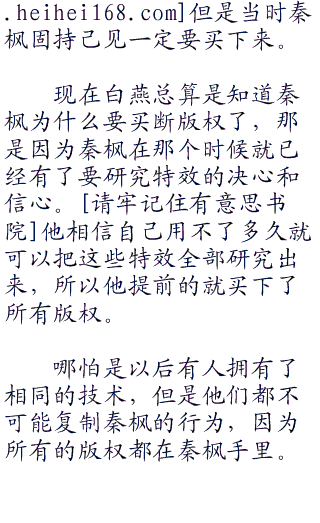 .heihei168.com]但是当时秦
枫固持己见一定要买下来。
现在白燕总算是知道秦
枫为什么要买断版权了，那
是因为秦枫在那个时候就已
经有了要研究特效的决心和
信心。[请牢记住有意思书
院]他相信自己用不了多久就
可以把这些特效全部研究出
来，所以他提前的就买下了
所有版权。
哪怕是以后有人拥有了
相同的技术，但是他们都不
可能复制秦枫的行为，因为
所有的版权都在秦枫手里。